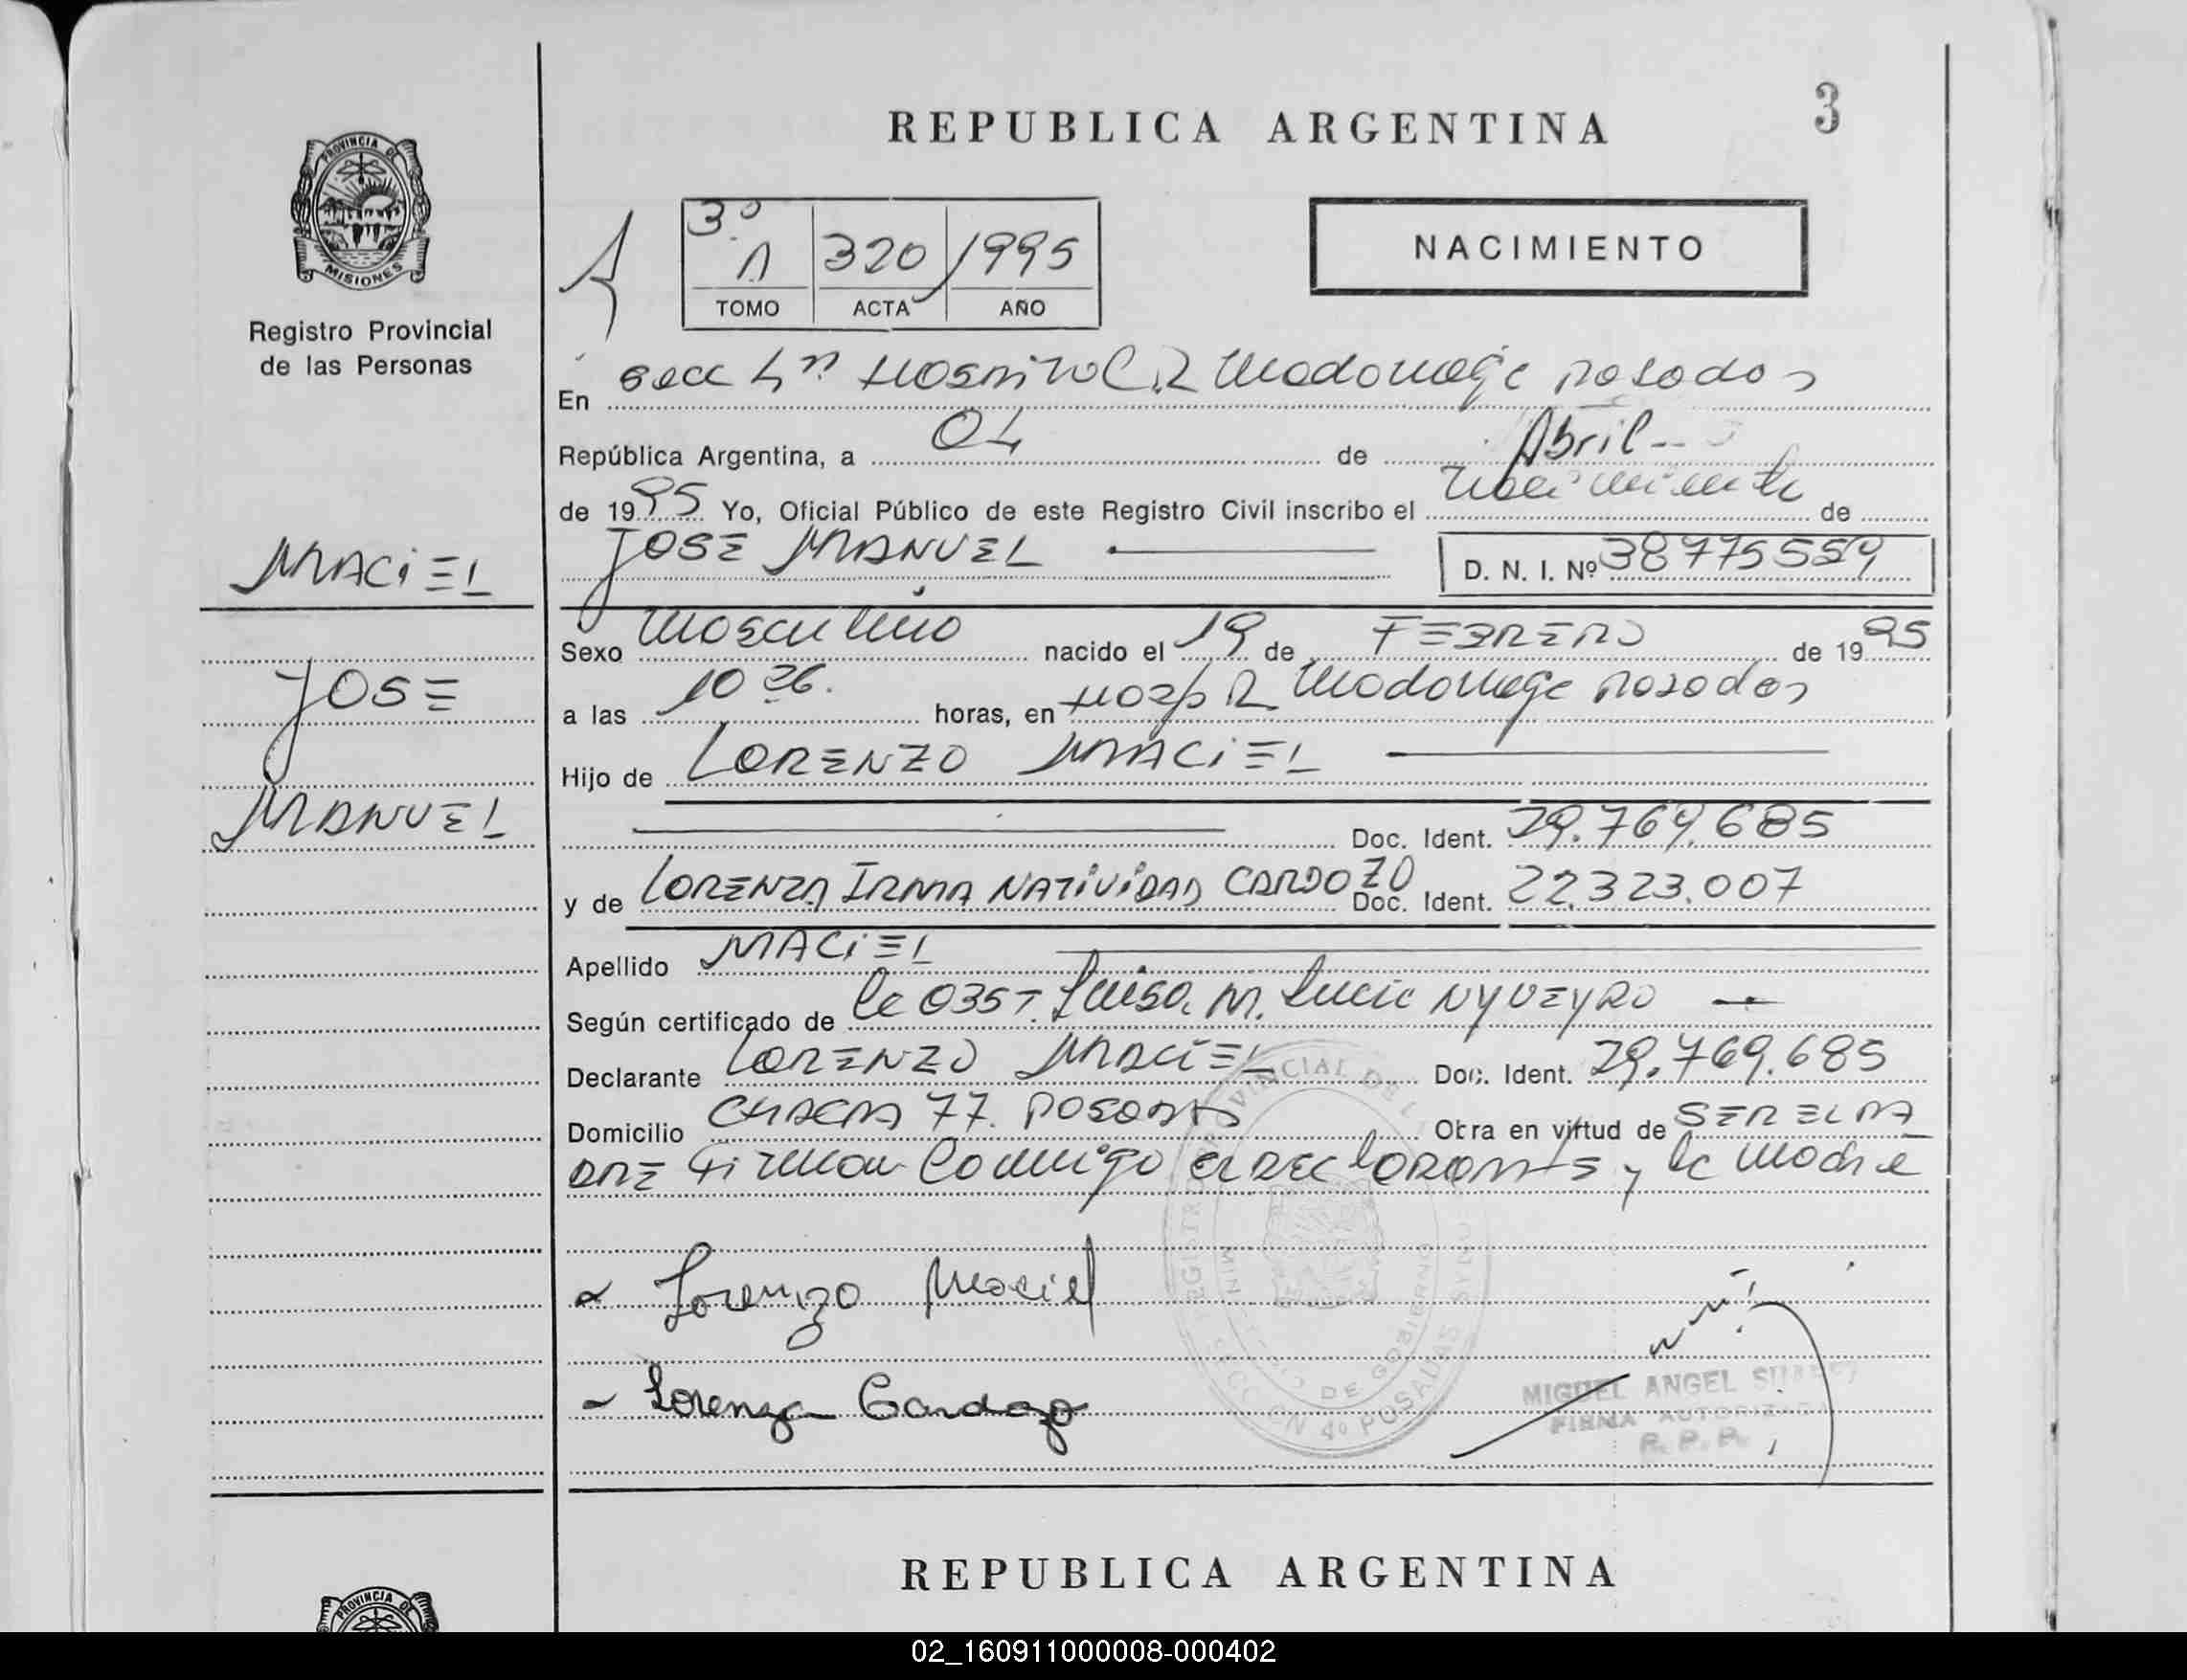 REPUBLICA ARGENTINA
3
PROVINCIA DE
MISIONES
Registro Provincial
de las Personas
3º
1 320 1995
TOMO ACTA AÑO
NACIMIENTO
En Secc 4ª Hospital R Madariaga Posadas
República Argentina, a 04 de Abril
de 1995 Yo, Oficial Público de este Registro Civil inscribo el Nacimiento de
MACIEL
JOSE MANUEL D. N. I. Nº 38775559
Sexo Masculino nacido el 19 de FEBRERO de 1995
JOSE
a las 10 26. horas, en Hosp R Madariaga Posadas
Hijo de LORENZO MACIEL
MANUEL
Doc. Ident. 29.769.685
y de LORENZA IRMA NATIVIDAD CARDOZO Doc. Ident. 22.323.007
Apellido MACIEL
Según certificado de la OBST. Luisa M. Lucia
Declarante LORENZO MACIEL Doc. Ident. 29.769.685
Domicilio CHACRA 77. POSADAS Obra en virtud de SER EL PA
DRE Firman Conmigo el DECLARANTE y la Madre
Lorenzo Maciel
Lorenza Cardozo
MIGUEL ANGEL
FIRMA AUTORIZADA
R. P. P.
REPUBLICA ARGENTINA
PROVINCIA DE
02_160911000008-000402